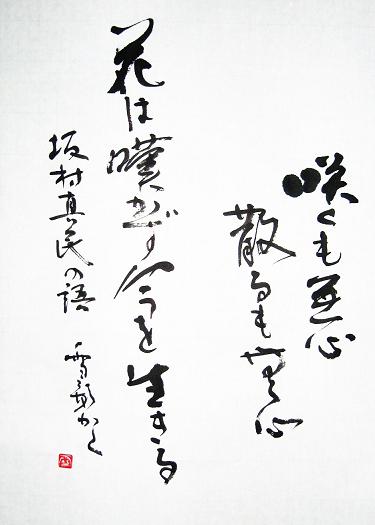 咲くも無心
散るも無心
花は嘆かず今を生きる
坂村真民の語
かく